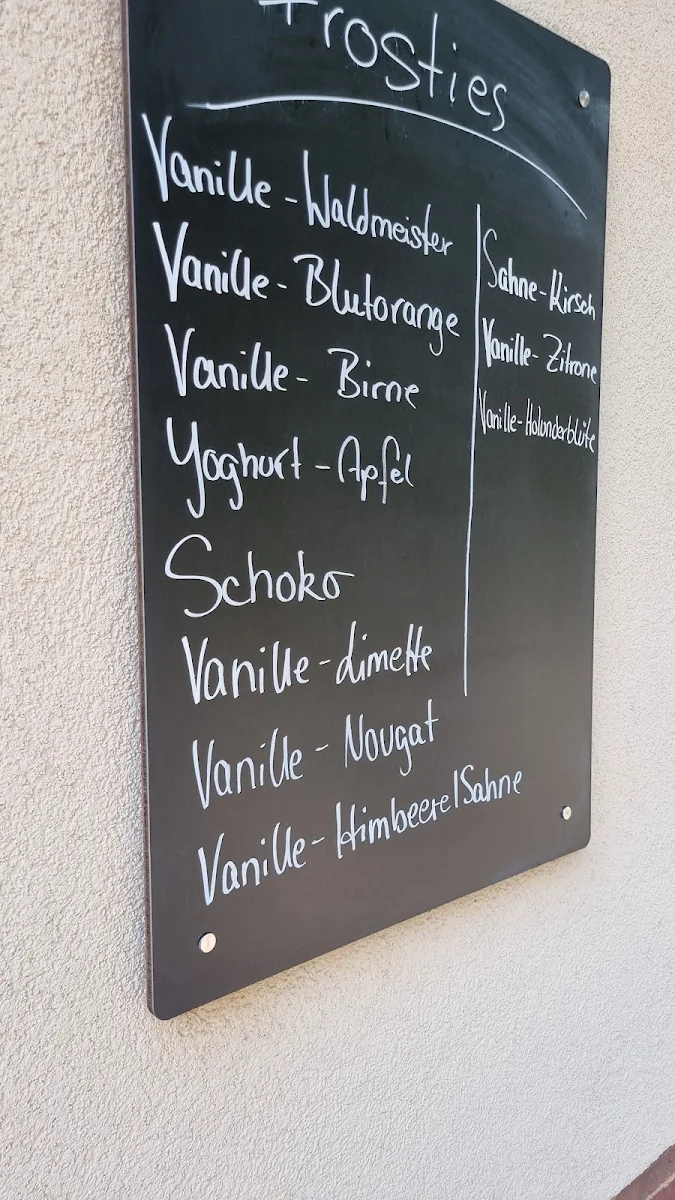 Frosties
Vanille - Waldmeister
Vanille - Blutorange
Vanille - Birne
Yoghurt - Apfel
Schoko
Vanille - Limette
Vanille - Nougat
Vanille - Himbeere/Sahne
Sahne - Kirsch
Vanille - Zitrone
Vanille - Holunderblüte